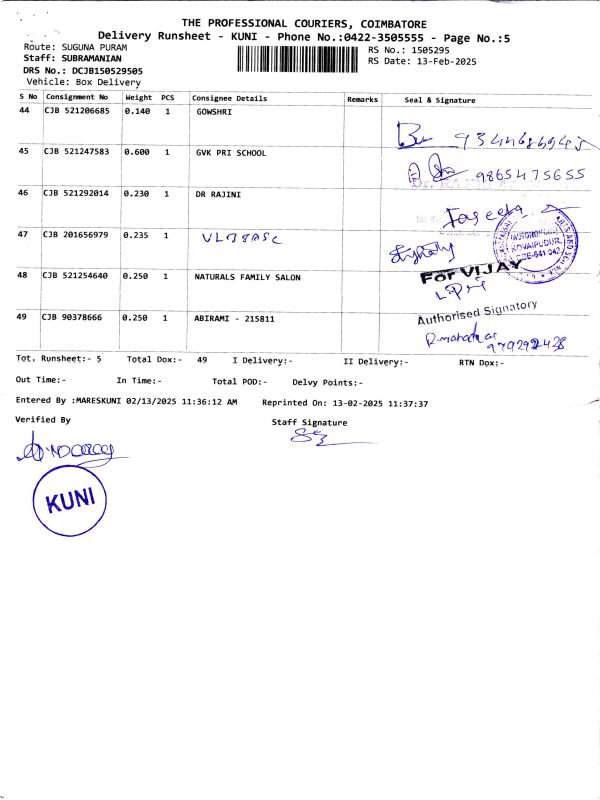 THE PROFESSIONAL COURIERS, COIMBATORE
Delivery Runsheet - KUNI - Phone No.:0422-3505555 - Page No.:5
Route: SUGUNA PURAM
RS No.: 1505295
Staff: SUBRAMANIAN
RS Date: 13-Feb-2025
DRS No.: DCJB150529505
Vehicle: Box Delivery
S No Consignment No Weight PCS Consignee Details Remarks Seal & Signature
44 CJB 521206685 0.140 1 GOWSHRI
45 CJB 521247583 0.600 1 GVK PRI SCHOOL
9865475655
46 CJB 521292014 0.230 1 DR RAJINI
47 CJB 201656979 0.235 1
KOVAIPUDUR
For VIJAY
48 CJB 521254640 0.250 1 NATURALS FAMILY SALON
Authorised Signatory
49 CJB 90378666 0.250 1 ABIRAMI - 215811
Tot. Runsheet:- 5 Total Dox:- 49 I Delivery:- II Delivery:- RTN Dox:-
Out Time:- In Time:- Total POD:- Delvy Points:-
Entered By :MARESKUNI 02/13/2025 11:36:12 AM Reprinted On: 13-02-2025 11:37:37
Verified By Staff Signature
KUNI